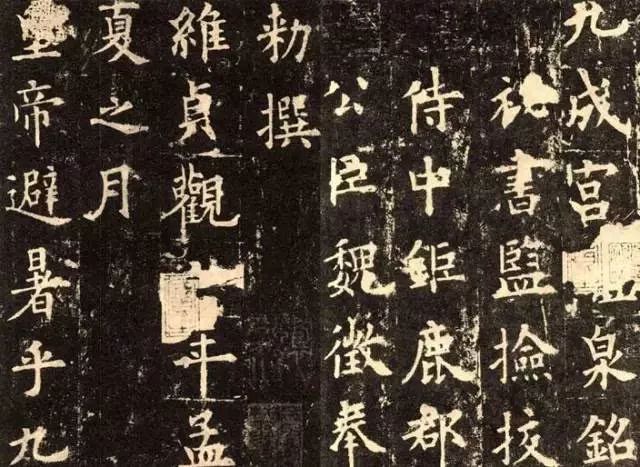 九成宮泉銘
祕書監撿挍
侍中鉅鹿郡
公臣魏徵奉
勅撰
維貞觀年孟
夏之月
皇帝避暑乎九